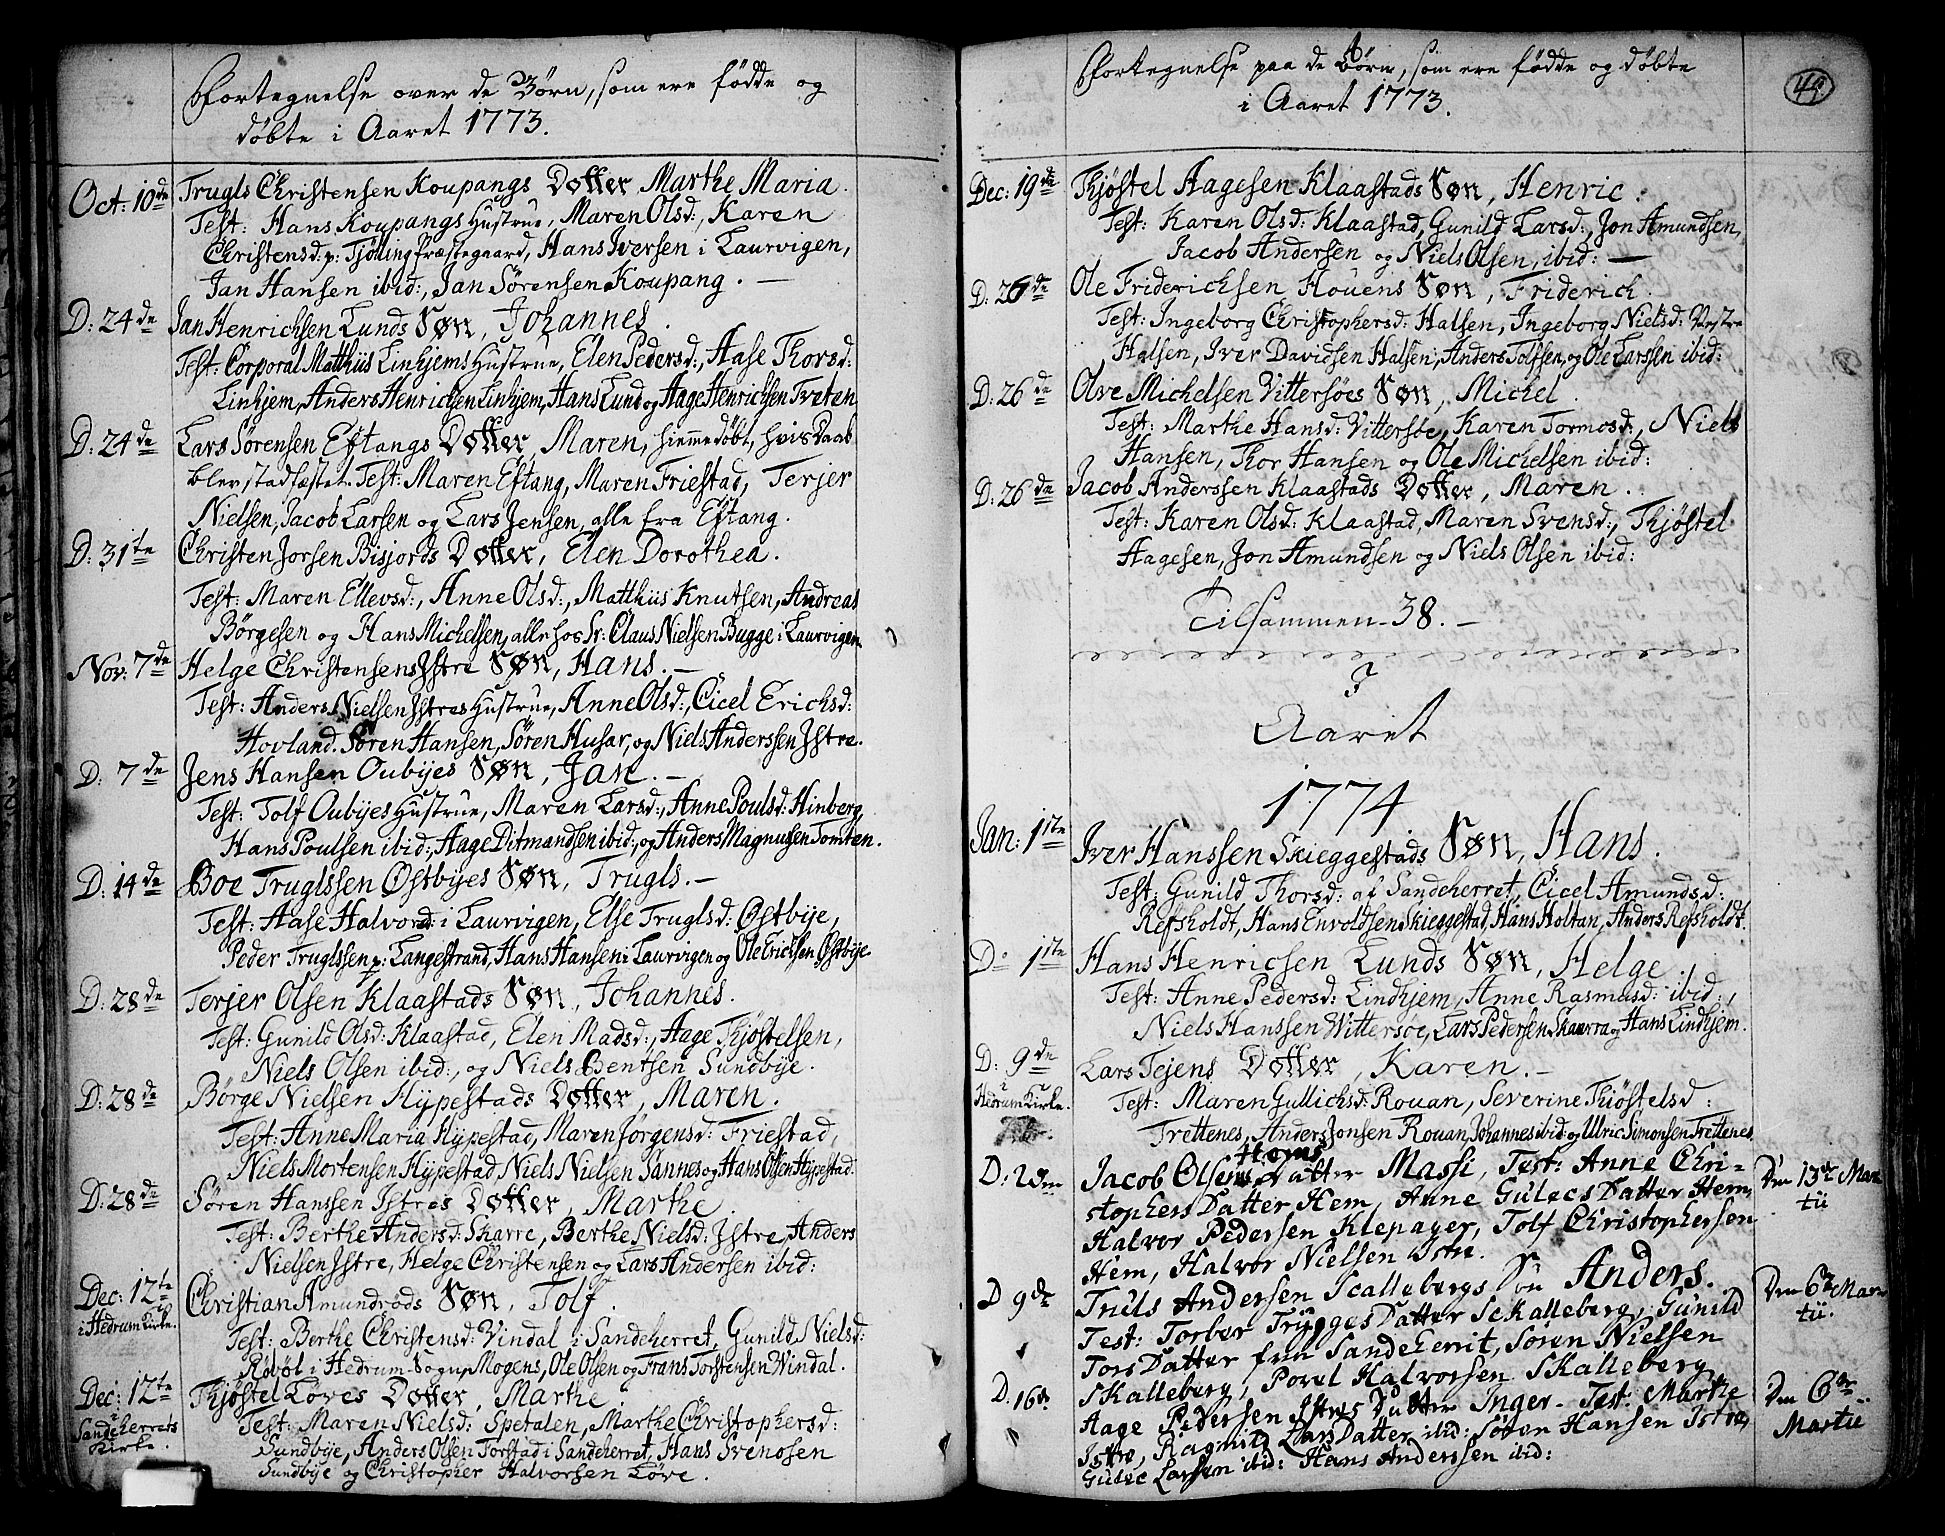 Fortegnelse over de Børn, som ere fødde og
døbte i Aaret 1773.
Oct: 10de Trugls Christensen Koupangs Dotter Marthe Maria.
Test: Hans Koupangs Hustrue, Maren Olsd:, Karen
Christensd: p: Tjølling Præstegaard, Hans Iversen i Laurvigen,
Jan Hansen ibid:, Jan Sørensen Koupang. —
D: 24de Jan Henrichsen Lunds Søn, Johannes.
Test: Corporal Matthiis Linhjems Hustrue, Elen Pedersd:, Aase Thorsd:
Linhjem, Anders Henrichsen Linhjem, Hans Lund og Aage Henrichsen Tveten
D: 24de Lars Sørensen Eftangs Dotter, Maren, hiemmedøbt, hvis Daab
blev stadfæstet. Test: Maren Eftang, Maren Friestad, Terjer
Nielsen, Jacob Larsen og Lars Jensen, alle fra Eftang.
D: 31te Christen Jorsen Bisjords Dotter, Elen Dorothea.
Test: Maren Ellevsd:, Anne Olsd:, Matthiis Knutsen, Andreas
Børgesen og Hans Michelsen, alle hos Sr: Claus Nielsen Bugge i Laurvigen
Nov: 7de Helge Christensens Istre Søn, Hans. —
Test: Anders Nielsen Istres Hustrue, Anne Olsd:, Cicel Erichsd:
Hovland. Søren Hansen, Søren Husar, og Niels Anderssen Istre.
D: 7de Jens Hansen Oubyes Søn, Jan. —
Test: Tolf Oubyes Hustrue, Maren Larsd:, Anne Poulsd: Hinberg,
Hans Poulsen ibid:, Aage Ditmandsen ibid:, og Anders Magnussen Tomten.
D: 14de Boe Truglssen Østbyes Søn, Trugls. —
Test: Aase Halvorsd: i Laurvigen, Else Truglsd: Østbye,
Peder Truglssen p: Langestrand, Hans Hansen i Laurvigen og Ole Ericksen Østbye
D: 28de Terjer Olsen Klaastads Søn, Johannes.
Test: Gunild Olsd: Klaastad, Elen Madsd:, Aage Thjøstelsen,
Niels Olsen ibid:, og Niels Bentsen Sundbye.
D: 28de Børge Nielsen Hypestads Dotter, Maren.
Test: Anne Maria Hypestad, Maren Jørgensd: Friestad,
Niels Mortensen Hypestad, Niels Nielsen Sannes og Hans Olsen Hypestad.
D: 28de Søren Hanssen Istres Dotter, Marthe.
Test: Berthe Andersd: Skarre, Berthe Nielsd: Istre, Anders
Nielsen Istre, Helge Christensen og Lars Andersen ibid:
Dec: 12te i Hedrum Kirke. Christian Amundrøds Søn, Tolf.
Test: Berthe Christensd: Vindal i Sandeherret, Gunild Nielsd:
Rødøl i Hedrum Sogn, Mogens, Ole Olsen og Frans Torstensen Windal.
Dec: 12te i Sandeherrets Kirke. Thjøstel Løves Dotter, Marthe
Test: Maren Nielsd: Spetalen, Marthe Christophersd:
Sundbye, Anders Olsen Torstad i Sandeherret, Hans Svenosen
Sundbye og Christopher Halvorsen Løve.
49.
Fortegnelse paa de Børn, som ere fødde og døbte
i Aaret 1773.
Dec: 19de Thjøstel Aagesen Klaastads Søn, Henric.
Test: Karen Olsd: Klaastad, Gunild Larsd:, Jon Amundsen,
Jacob Andersen og Niels Olsen, ibid: —
D: 26de Ole Friderichsen Houens Søn, Friderich.
Test: Ingeborg Christophersd: Halsen, Ingeborg Nielsd: Vestre
Halsen, Iver Davidsen Halsen, Anders Tolfsen, og Ole Larssen ibid:
D: 26de Olve Michelsen Vittersøes Søn, Michel.
Test: Marthe Hansd: Vittersøe, Karen Tormosd:, Niels
Hansen, Thor Hansen og Ole Michelsen ibid:
D: 26de Jacob Anderssen Klaastads Dotter, Maren.
Test: Karen Olsd: Klaastad, Maren Svensd:, Thjøstel
Aagesen, Jon Amundsen og Niels Olsen ibid:
Tilsammen - 38. —
Aaret
1774
Jan: 1ste Iver Hanssen Skieggestads Søn, Hans.
Test: Gunild Thorsd: af Sandeherret, Cicel Amundsd:
Refsholdt, Hans Envoldsen Skieggestad, Hans Holtan, Anders Refsholdt.
D: 1ste Hans Henricsen Lunds Søn, Helge.
Test: Anne Pedersd: Lindhjem, Anne Rasmusd: ibid:,
Niels Hanssen Wittersøe, Lars Pedersen Skaurra og Hans Lindhjem.
D: 9de i Hedrum Kirke. Lars Tejens Dotter, Karen. —
Test: Maren Gullichsd: Rouan, Severine Thiøstelsd:
Trettenes, Anders Jonsen Rouan, Johannes ibid: og Ulric Simonsen Trettenes
Hems
D: Jacob Olsens Datter Massi, Test: Anne Chri-
stophers Datter Hem, Anne Gulecs Datter Hem,
Halvor Pedersen Klepager, Tolf Christophersen
Hem, Halvor Nielsen Istre.
Den 13de Mar-
tii
D 9de Truls Andersen Scallebergs Søn Anders.
Test: Torber Trygges Datter Sckalleberg, Gunild
Tors Datter fra Sandeherrit, Søren Nielsen
Skalleberg, Povel Halvorsen Skalleberg
Den 6te Mar-
tii.
D. 16de Aage Pedersen Istres Datter Inger - Test: Marthe
Istre, Ragnild Lars Datter ibid: Søren Hansen Istre,
Gulec Larsen ibid: Hans Anderssen ibid:
Den 6te
Martii